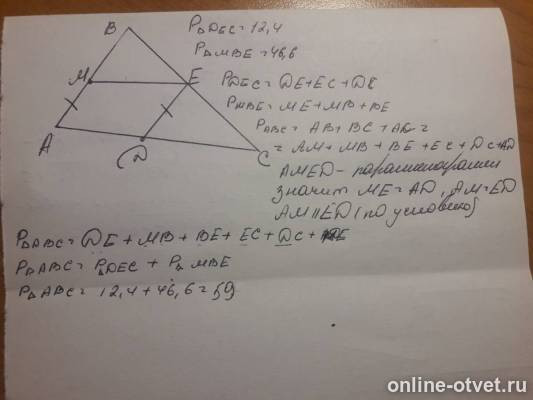 B
M
E
A
D
C
P△DEC = 12,4
P△MBE = 46,6
PDEC = DE + EC + DC
PMBE = ME + MB + BE
PABC = AB + BC + AC =
= AM + MB + BE + EC + DC + AD
AMED - параллелограмм
значит ME = AD, AM = ED
AM || ED (по условию)
P△ABC = DE + MB + BE + EC + DC +
P△ABC = P△DEC + P△MBE
P△ABC = 12,4 + 46,6 = 59
online-otvet.ru